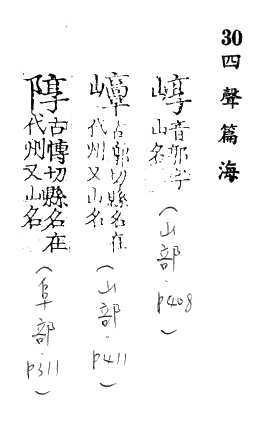 30四聲篇海
崞音郭字山名（山部.p408）
古郭切縣名在代州又山名（山部.p411）
古博切縣名在代州又山名（阜部.p311）